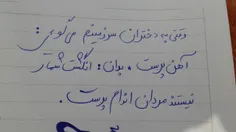 وقتی به دختران سرزمینم می‌گویی:
آهن پرست، بدان: انگشت شمار
نیستند مردان اندام پرست.